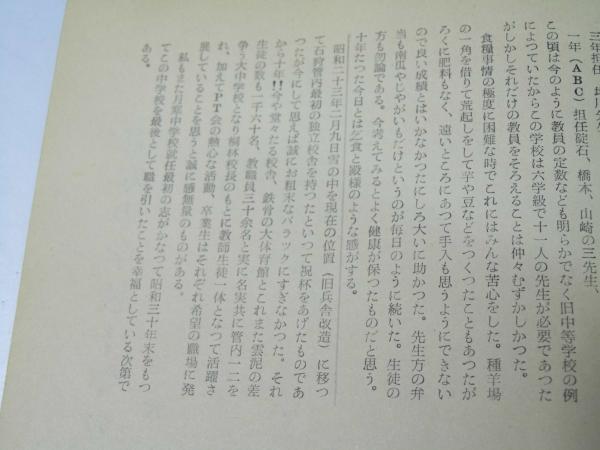 三年担任
一年（ABC）担任碇石、橋本、山崎の三先生、
この頃は今のように教員の定数なども明らかでなく旧中等学校の例
によつていたからこの学校は六学級で十一人の先生が必要であつた
がしかしそれだけの教員をそろえることは仲々むずかしかつた。
食糧事情の極度に困難な時でこれにはみんな苦心をした。種羊場
の一角を借りて荒起しをして芋や豆などをつくつたこともあつたが
ろくに肥料もなく、遠いところにあつて手入も思うようにできない
ので良い成績とはいかなかつたにしろ大いに助かつた。先生方の弁
当も南瓜やじやがいもだけというのが毎日のように続いた。生徒の
方も勿論である。今考えてみるとよく健康が保つたものだと思う。
十年たつた今日とは乞食と殿様のような感がする。
昭和二十三年二月九日雪の中を現在の位置（旧兵舎改造）に移つ
て石狩管内最初の独立校舎を持つたといつて祝杯をあげたものであ
つたが今にして思えば誠にお粗末なバラックにすぎなかつた。それ
から十年!!今や堂々たる校舎、鉄骨の大体育館とこれまた雲泥の差
生徒の数も一千六十名、教職員三十余名と実に名実共に管内一二を
争う大中学校となり桐林校長のもとに教師生徒一体となつて活躍さ
れ、加えてPT会の熱心な活動、卒業生はそれぞれ希望の職場に発
展していることを思うと誠に感無量のものがある。
私もまた月寒中学校就任最初の志がかなつて昭和三十年末をもつ
てこの中学校を最後として職を引いたことを幸福としている次第で
ある。